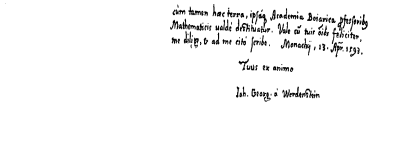 cùm tamen haec terra, ipsáq Academia Boiarica pfessoribq
Mathematicis ualdè destituatur. Vale cũ tuis õibs feliciter,
me dilige, & ad me citò scribe. Monachij, 13. Apr. 1593.
Tuus ex animo
Joh. Georg. à Werdenstein